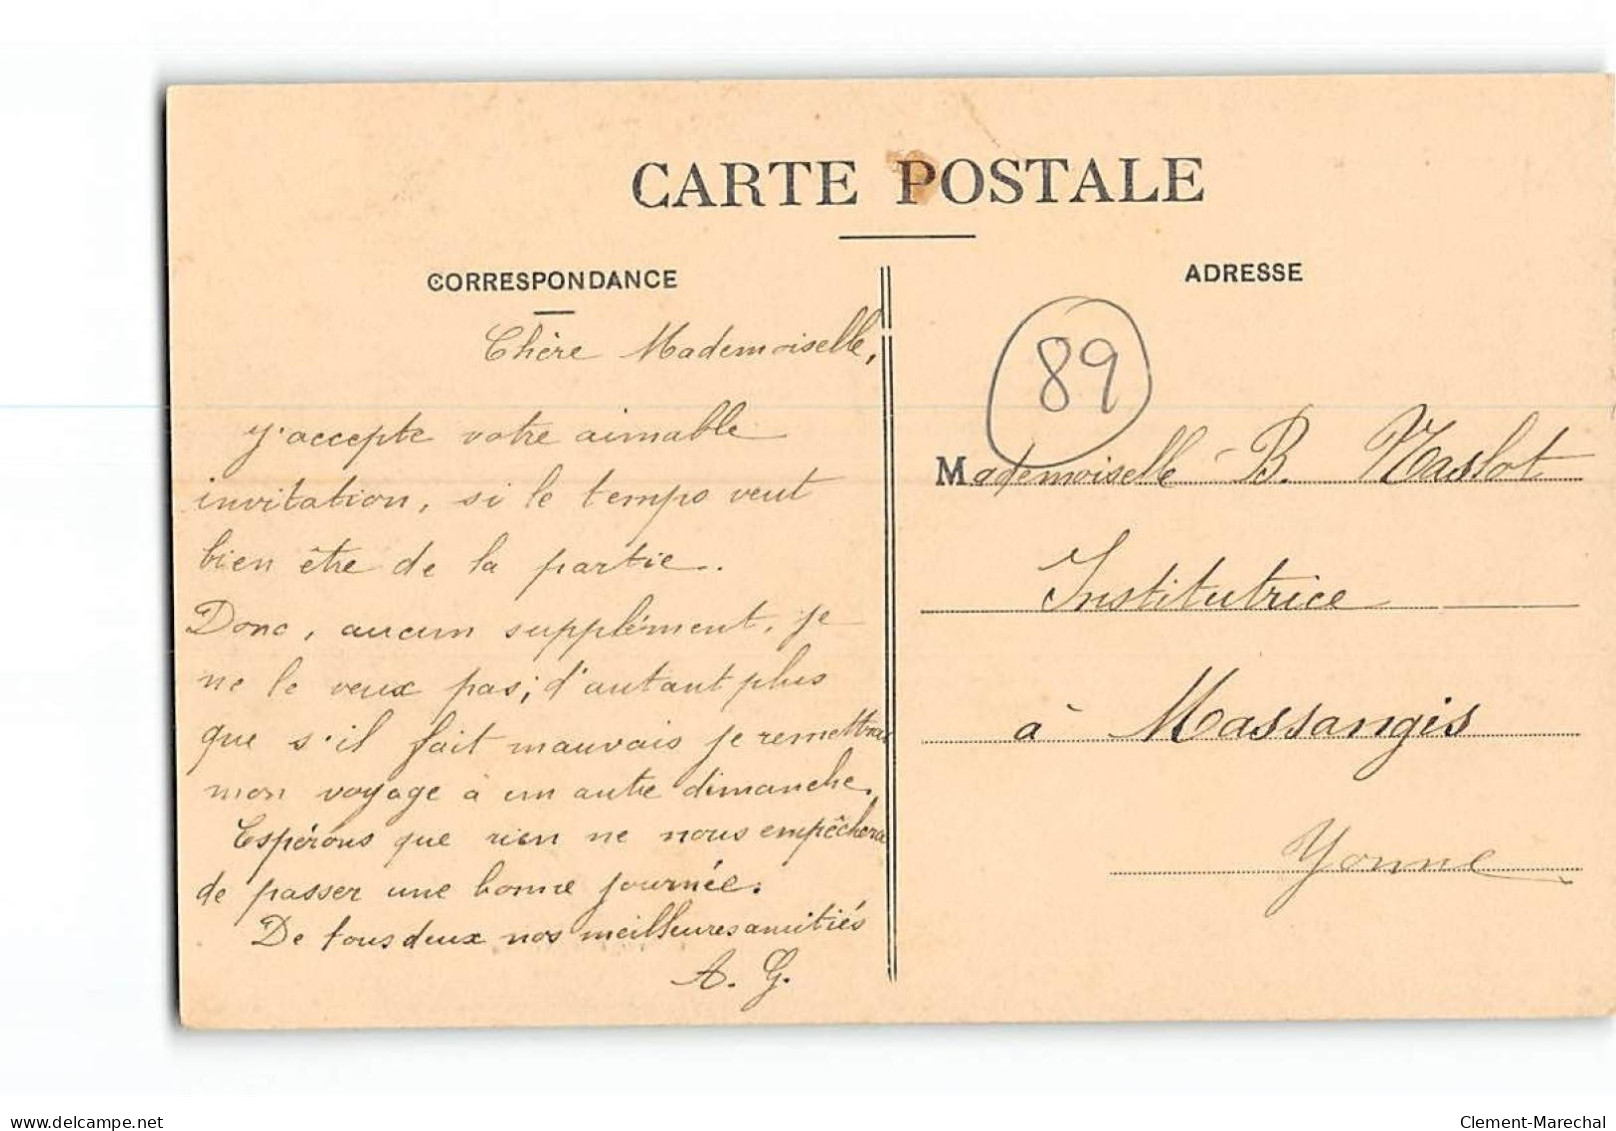 CARTE POSTALE
CORRESPONDANCE
Chère Mademoiselle,
J'accepte votre aimable
invitation, si le temps veut
bien être de la partie.
Donc, aucun supplément, je
ne le veux pas; d'autant plus
que s'il fait mauvais je remettrai
mon voyage à un autre dimanche.
Espérons que rien ne nous empêchera
de passer une bonne journée.
De tous deux nos meilleures amitiés
A. G.
ADRESSE
89
Mademoiselle B. Naslot
Institutrice
à Massangis
Yonne
www.delcampe.net
Clement-Marechal